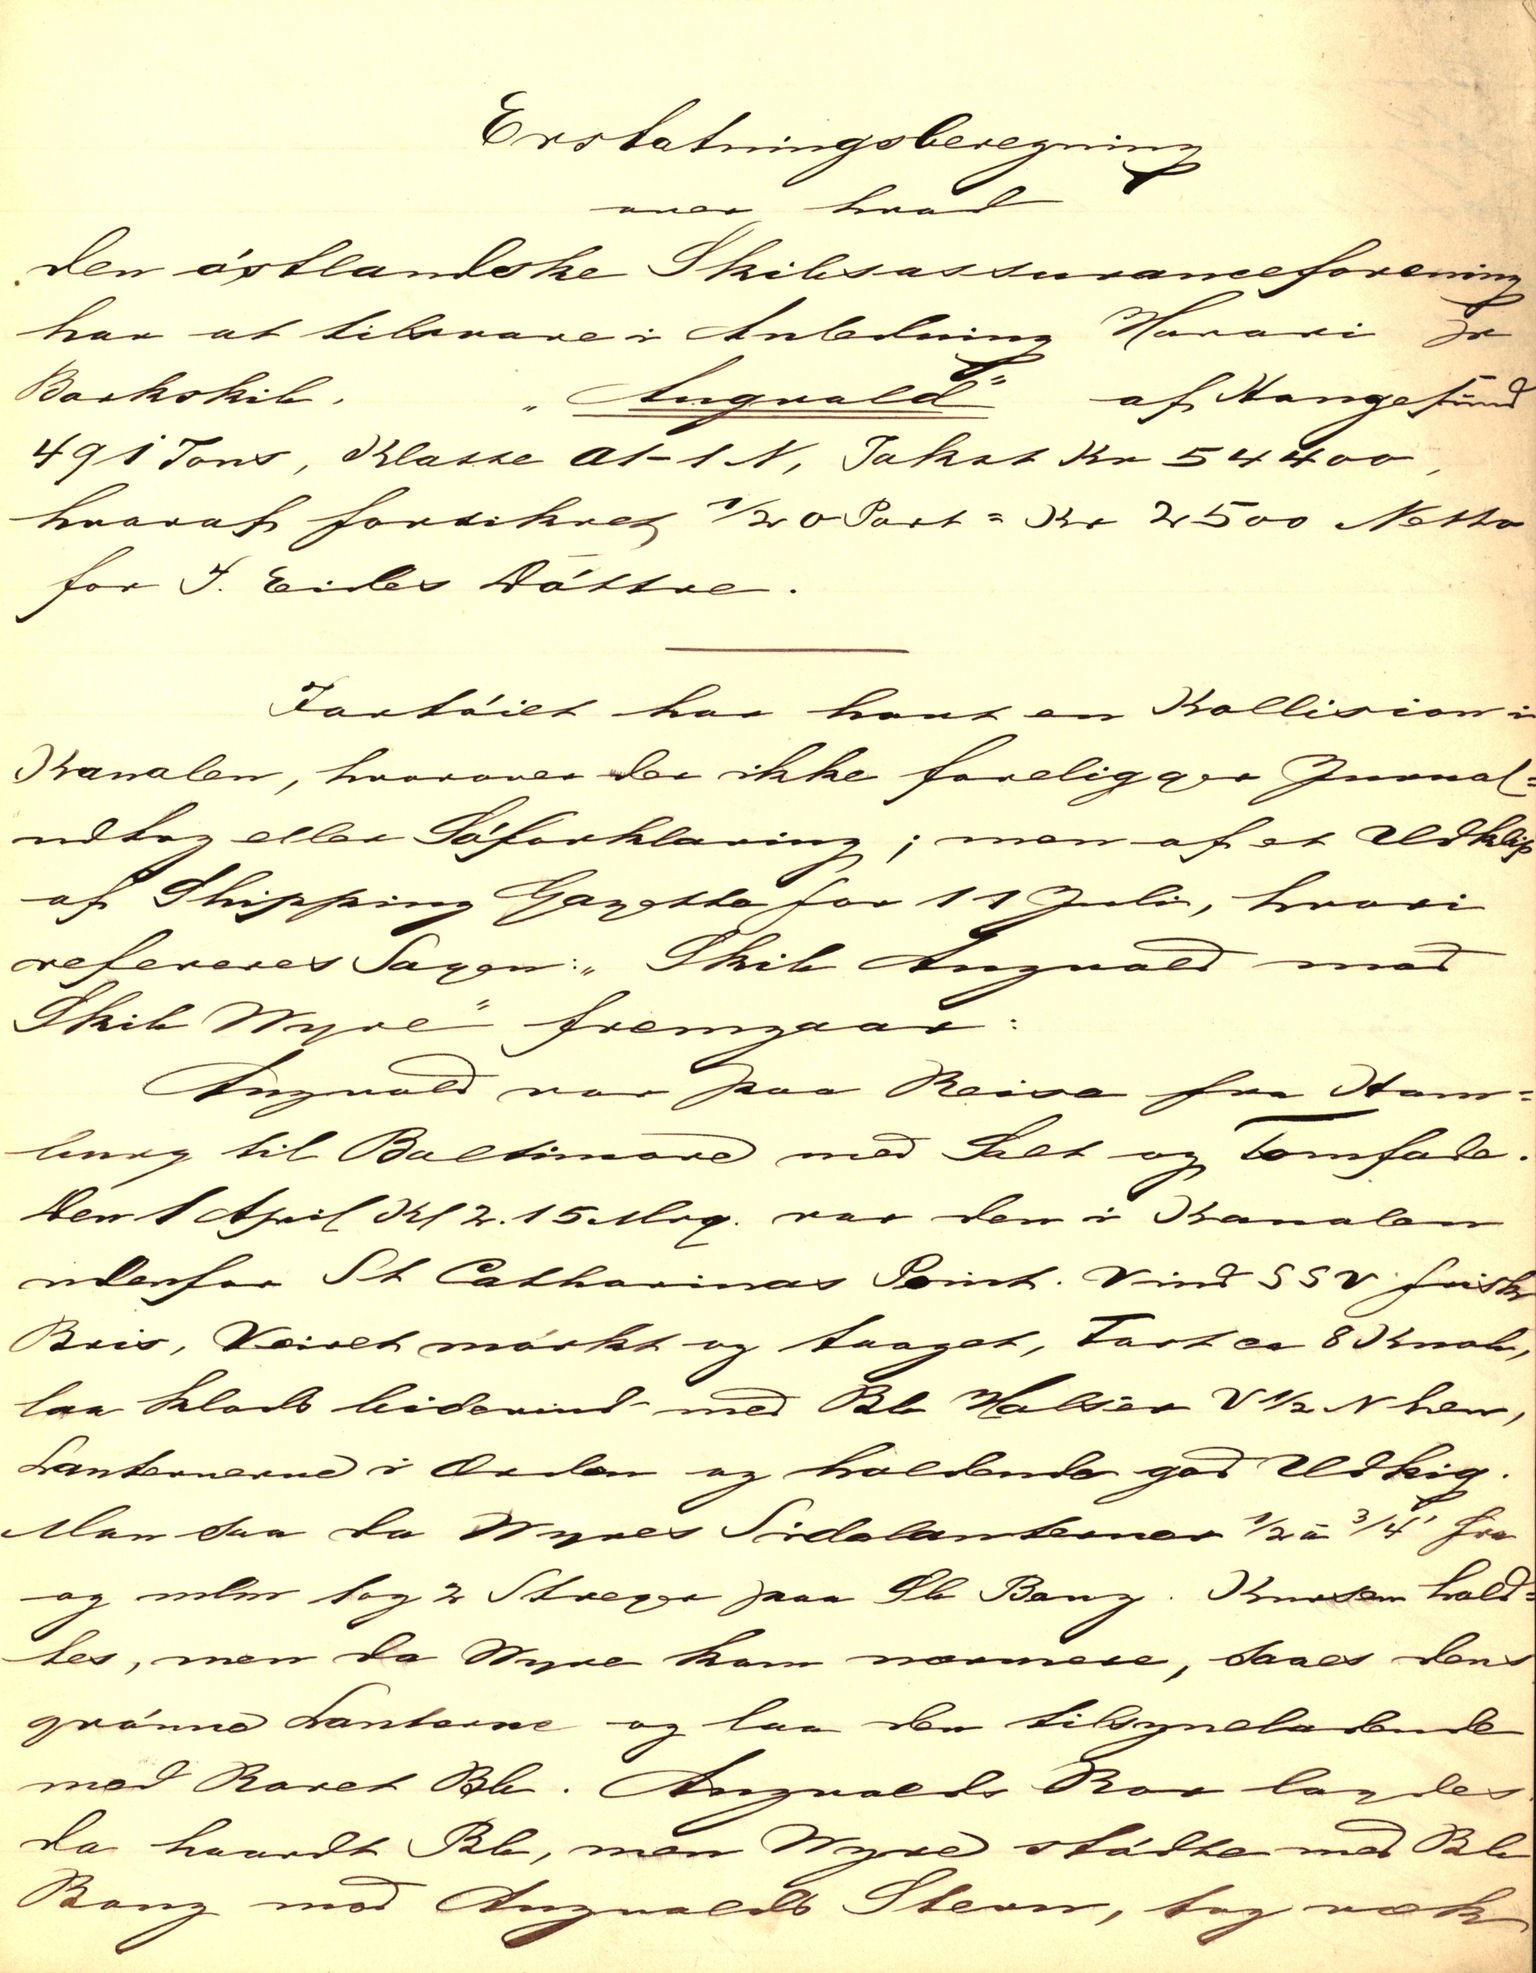 Erstatningsberegning
over hvad
den östlandske Skibsassuranceforening
har at tilsvare i Anledning Havari pr
Barkskib. „Angvald" af Haugesund
491 Tons, Klasse A1-1 N, Takst Kr 54400,
hvoraf forsikret 1/20 Part = Kr 2500 Netto
for J. Eides Döttre.
Fartöiet har havt en Kollision i
Kanalen, hvorover der ikke foreligger Jurnal=
udtog eller Söforklaring; men af et Udklip
af Shipping Gazette for 11 Juli, hvori
refereres Sagen: „Skib Angvald mod
Skib Wyre" fremgaar:
Angvald var paa Reise fra Ham=
burg til Baltimore med Salt og Tomfade.
Den 1 April Kl 2.15 Mrg. var den i Kanalen
udenfor St Catharinas Point. Vind SSV frisk
Bris, Veiret mörkt og taaget, Fart ca 8 Knob,
laa klods bidevind med Bb Halser V 1/2 N hen,
Lanternerne i Orden og holdende god Udkig.
Man saa da Wyres Sidelanterner 1/2 à 3/4' fra
og 2 Streger paa Sb Boug. Kursen hold=
tes, men da Wyre kom nærmere, saaes dens
grönne Lanterne og laa den tilsyneladende
med Roret Bb. Angvalds Ror lagdes
da haardt Bb, men Wyre stödte med Bb
Boug mod Angvalds Stevn, tog væk